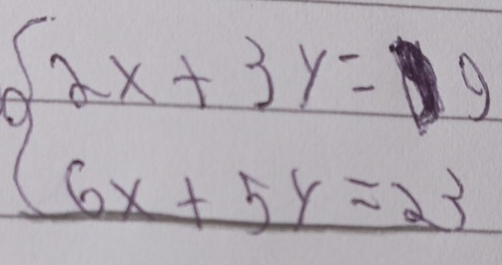 2x + 3y = 9
6x + 5y = 23